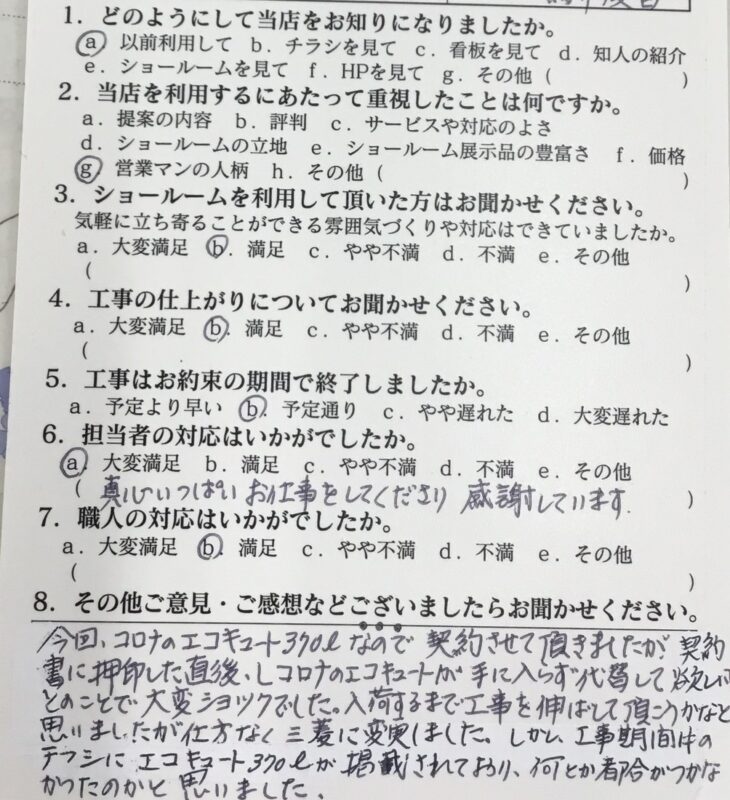 1．どのようにして当店をお知りになりましたか。
a．以前利用して b．チラシを見て c．看板を見て d．知人の紹介
e．ショールームを見て f．HPを見て g．その他（ ）
2．当店を利用するにあたって重視したことは何ですか。
a．提案の内容 b．評判 c．サービスや対応のよさ
d．ショールームの立地 e．ショールーム展示品の豊富さ f．価格
g．営業マンの人柄 h．その他（ ）
3．ショールームを利用して頂いた方はお聞かせください。
気軽に立ち寄ることができる雰囲気づくりや対応はできていましたか。
a．大変満足 b．満足 c．やや不満 d．不満 e．その他
（ ）
4．工事の仕上がりについてお聞かせください。
a．大変満足 b．満足 c．やや不満 d．不満 e．その他
（ ）
5．工事はお約束の期間で終了しましたか。
a．予定より早い b．予定通り c．やや遅れた d．大変遅れた
6．担当者の対応はいかがでしたか。
a．大変満足 b．満足 c．やや不満 d．不満 e．その他
（ 真心いっぱいお仕事をしてくださり 感謝しています． ）
7．職人の対応はいかがでしたか。
a．大変満足 b．満足 c．やや不満 d．不満 e．その他
（ ）
8．その他ご意見・ご感想などございましたらお聞かせください。
今回、コロナのエコキュート370ℓなので 契約させて頂きましたが 契約
書に押印した直後、コロナのエコキュートが 手に入らず代替して欲しい
とのことで大変ショックでした。入荷するまで工事を伸ばして頂こうかなと
思いましたが仕方なく 三菱に変更しました。しかし、工事期間中の
チラシに エコキュート370ℓが 掲載されており、何とか都合がつかな
かったのかと 思いました．